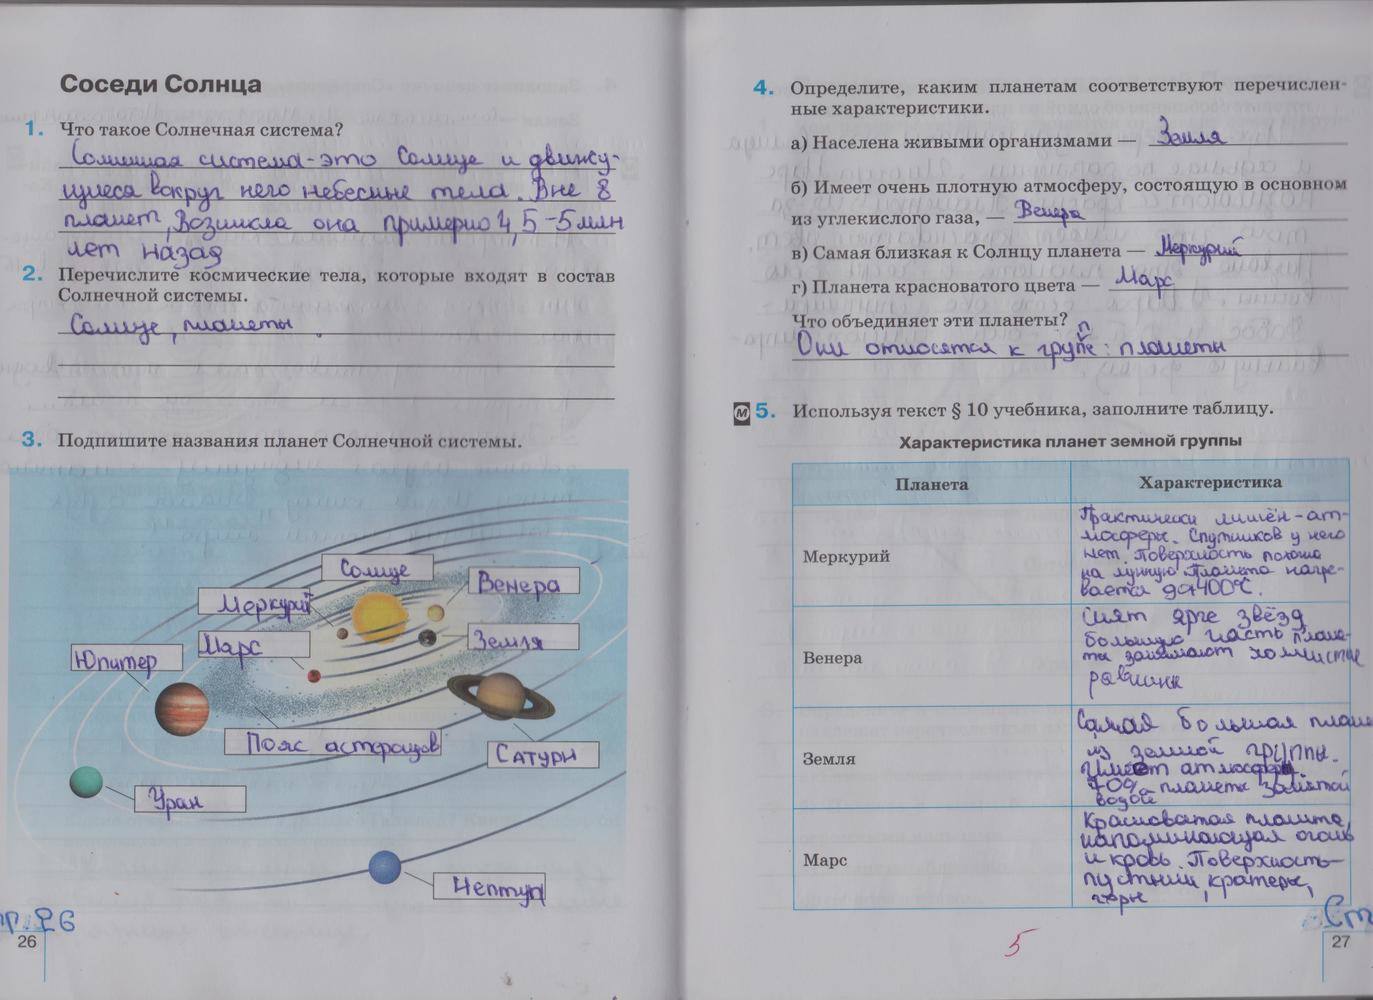 Соседи Солнца
1. Что такое Солнечная система?
Солнечная система-это Солнце и движу-
щиеся вокруг него небесные тела. Вне 8
планет, Возникла она примерно 4,5-5 млн
лет назад
2. Перечислите космические тела, которые входят в состав
Солнечной системы.
Солнце, планеты
3. Подпишите названия планет Солнечной системы.
Солнце
Меркурий
Венера
Марс
Земля
Юпитер
Пояс астероидов
Сатурн
Уран
Нептун
26
26
4. Определите, каким планетам соответствуют перечислен-
ные характеристики.
а) Населена живыми организмами — Земля
б) Имеет очень плотную атмосферу, состоящую в основном
из углекислого газа, — Венера
в) Самая близкая к Солнцу планета — Меркурий
г) Планета красноватого цвета — Марс
Что объединяет эти планеты?
Они относятся к группе: планеты
М 5. Используя текст § 10 учебника, заполните таблицу.
Характеристика планет земной группы
Планета Характеристика
Меркурий
Практически лишён-ат-
мосферы. Спутников у него
нет. Поверхность похожа
на лунную. Планета нагре-
вается до 400°С.
Венера
Сият ярче звёзд
большую часть плане-
ты занимают холмистые
равнины
Земля
Самая большая плане
из земной группы.
Имеет атмосферу.
70% планеты занятой
водой
Марс
Красноватая планета,
напоминающая огонь
и кровь. Поверхность-
пустыни, кратеры,
горы
5
Ст
27